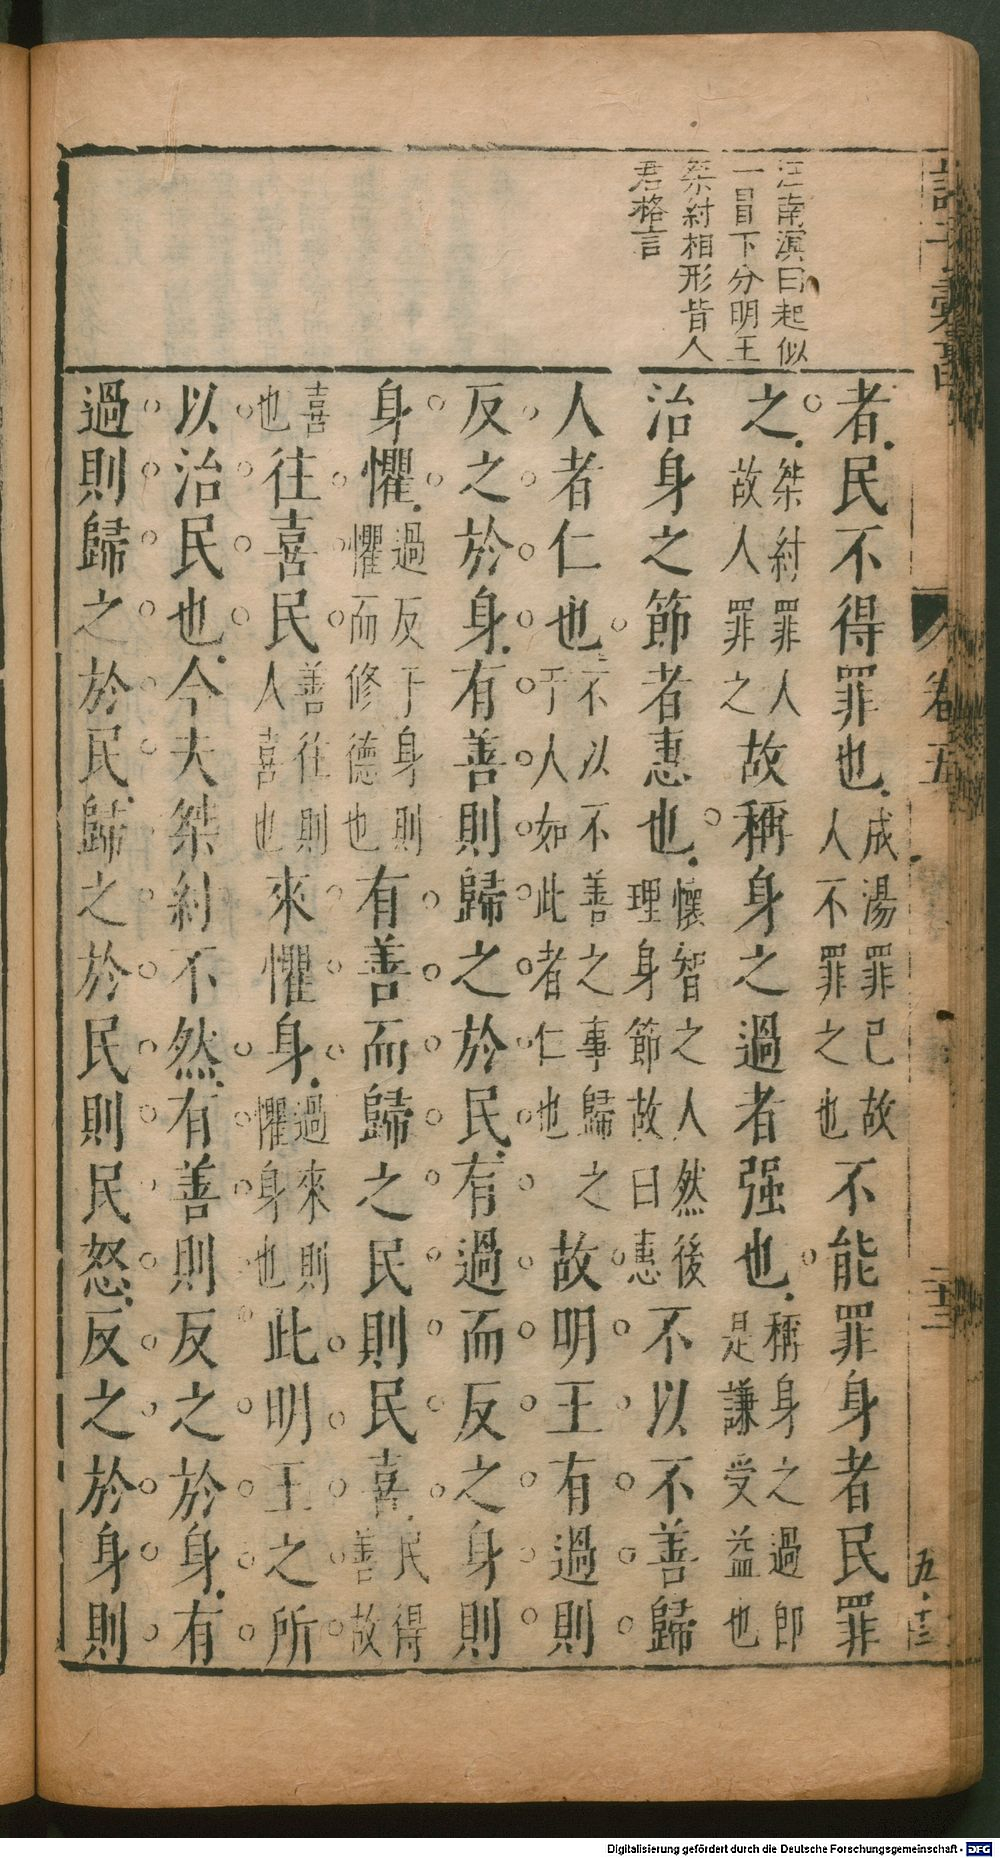 汪南溟曰起似
一冒下分明王
桀紂相形皆人
君格言
者民不得罪也成湯罪己故人不罪之也不能罪身者民罪
之桀紂罪人故人罪之故稱身之過者强也稱身之過即是謙受益也
治身之節者惠也懷智之人然後理身節故曰惠不以不善歸
人者仁也不以不善之事歸之于人如此者仁也故明王有過則
反之於身有善則歸之於民有過而反之身則
身懼過反于身則懼而修德也有善而歸之民則民喜民得善故
喜也往喜民善往則人喜也來懼身過來則懼身也此明王之所
以治民也今夫桀紂不然有善則反之於身有
過則歸之於民歸之於民則民怒反之於身則
卷五
二十三
五·十三
Digitalisierung gefördert durch die Deutsche Forschungsgemeinschaft - DFG